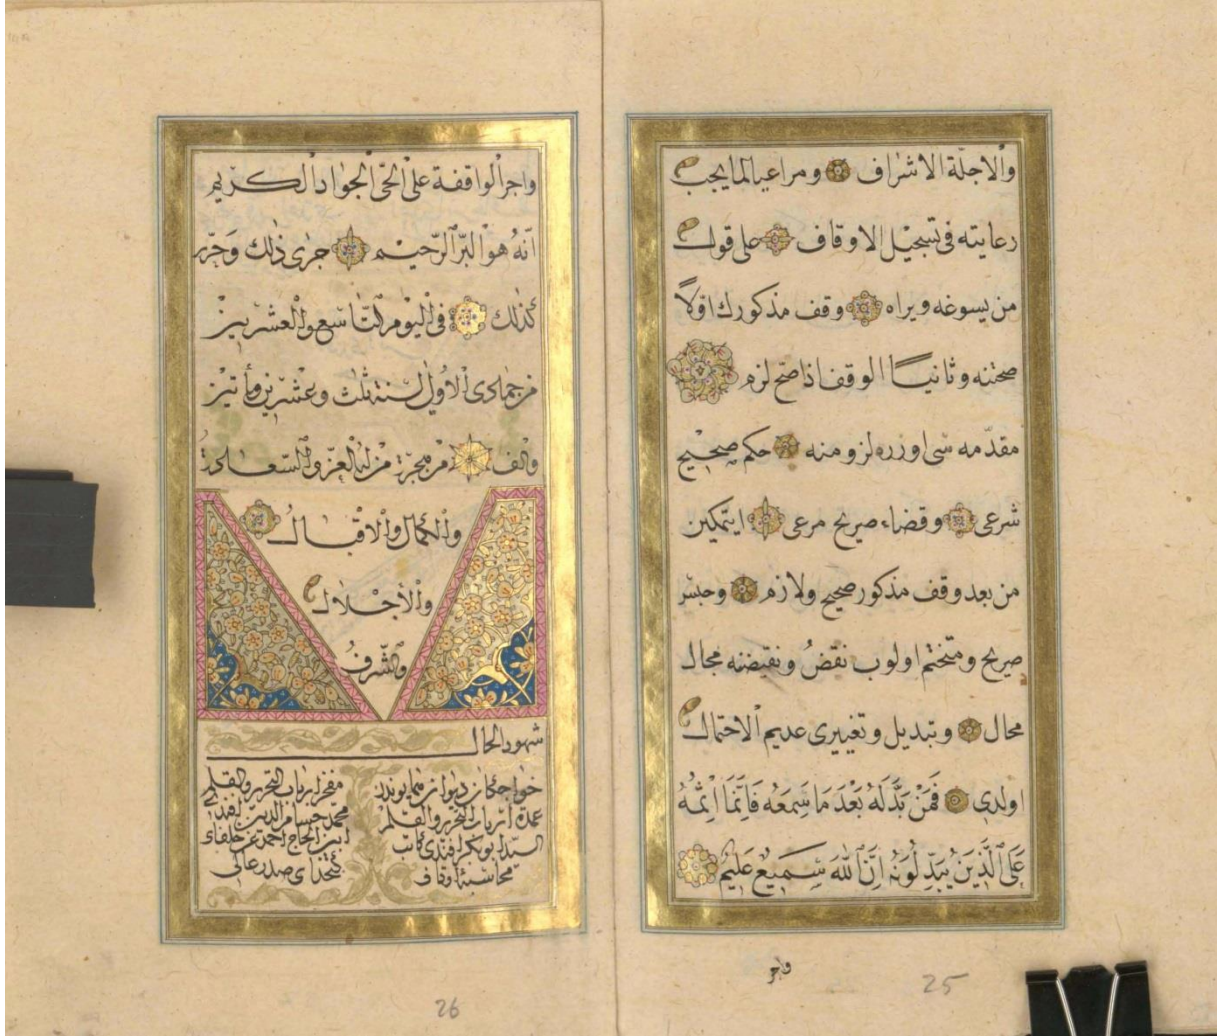 والاجلّة الاشراف ومراعيا لما يجب
رعايته فى تسجيل الاوقاف على قول
من يسوغه ويراه وقف مذكورك اوّلا
صحتنه وثانيا الوقف اذا صح لزم
مقدّمه سى اوزره لزومنه حكم صحيح
شرعى وقضاء صريح مرعى ايتمكين
من بعد وقف مذكور صحيح ولازم وحبس
صريح ومتختم اولوب نقض ونقيضنه مجال
محال وتبديل وتغييرى عديم الاحتمال
اولدى فَمَنْ بَدَّلَهُ بَعْدَ مَا سَمِعَهُ فَاِنَّمَا اِثْمُهُ
عَلَى الَّذِينَ يُبَدِّلُونَهُ اِنَّ اللّٰهَ سَمِيعٌ عَلِيمٌ
واجر
25
واجر الواقفة على الحىّ الجواد الكريم
انّهُ هو البرّ الرّحيم جرى ذٰلك وحرّر
كذلك فى اليوم التّاسع والعشرين
من جمادى الاول لسنة ثلث وعشرين ومأتين
والف من هجرة من له العزّ والسّعادة
والكمال والاقبال
والأجلال
والشّرف
شهود الحال
خواجكان ديوان همايوندن
عمدة ارباب التحرير والقلم
السيّد ابو بكر افندى كاتب
محاسبۀ اوقاف
مفخر ارباب التحرير والقلم
محمد حسام الدين افندى
ابن الحاج احمد عن خلفاء
كتخداى صدر عالى
26